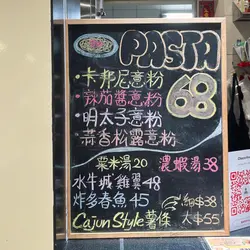 PASTA
·卡邦尼意粉
·辣茄醬意粉
68
·明太子意粉
·蒜香松露意粉
粟米湯20 濃蝦湯38
水牛城雞翼 48
炸多春魚 45
Cajun Style薯條
細$38
大$55